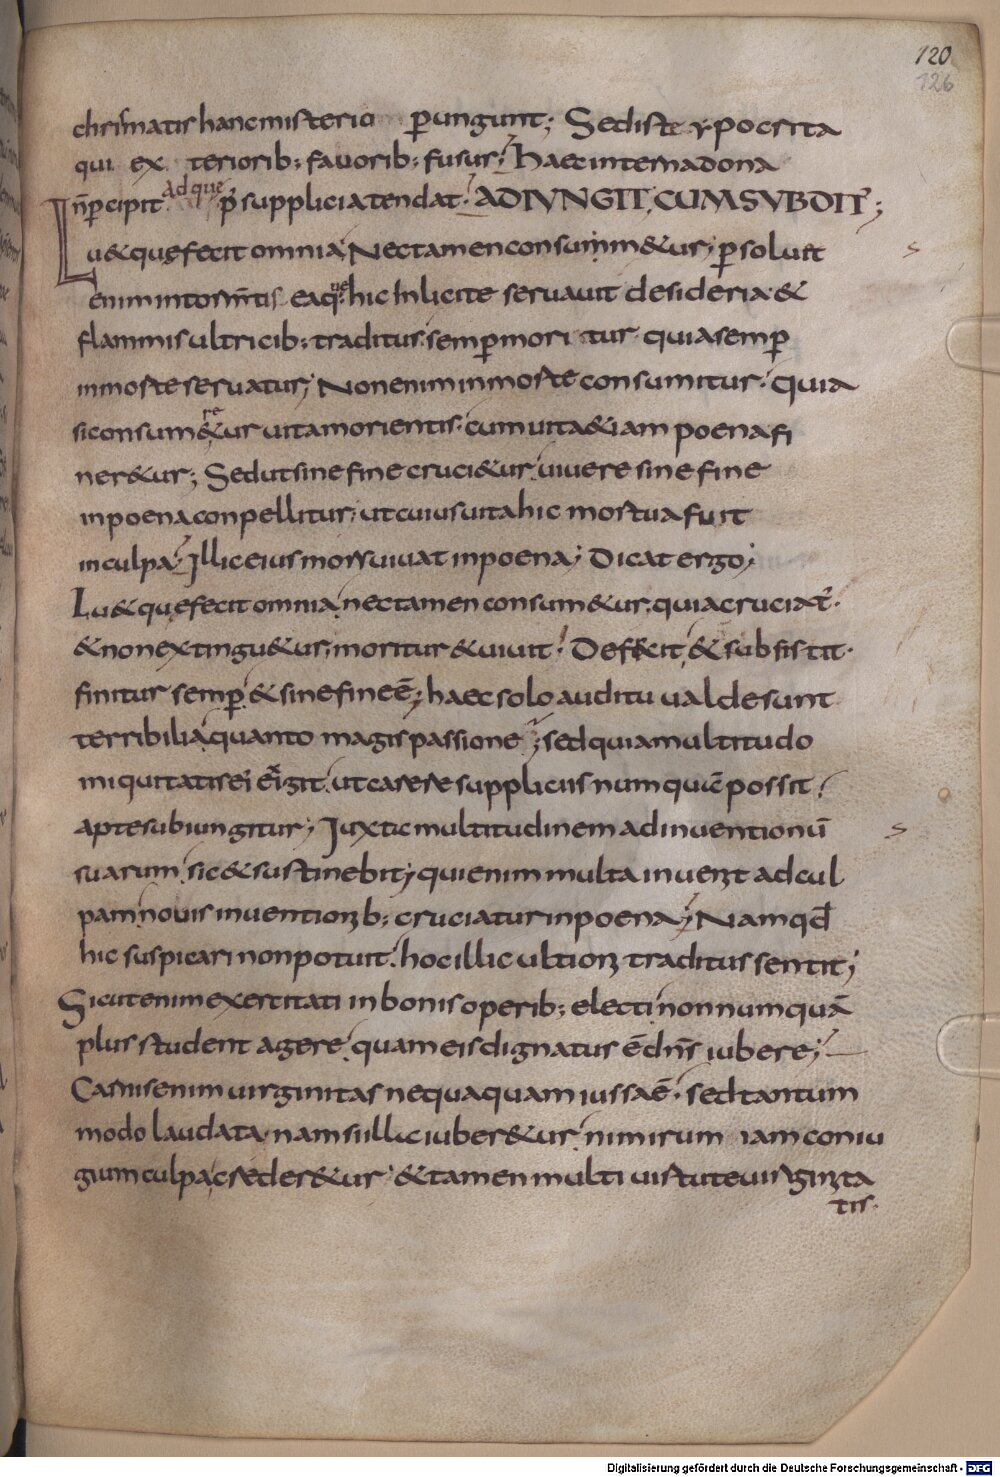 120
126
chrismatis hanc misterio perungunt; Sed iste ypocrita
qui exteriorib; fauorib; fusus; haec interna dona
n̄ pcipit. ad que p̄ supplicia tendat. ADIVNGIT CUM SVBDIT;
Lu& que fecit omnia Nec tamen consum&ur; psoluit
enim in torm̄tis eaque hic Inlicite seruauit desideria &
flammis ultricib; traditus semp moritur quia semp
in morte seruatur; Non enim in morte consumitur. quia
si consumer&ur uita morientis. cum uita &iam poena fi
ner&ur; Sed ut sine fine cruci&ur uiuere sine fine
in poena conpellitur; ut cuius uita hic mortua fuit
in culpa. Illic eius mors uiuat in poena; Dicat ergo;
Lu& que fecit omnia nec tamen consum&ur. quia cruciat.
& non exting&ur; moritur & uiuit. Deficit & subsistit.
finitur semp & sine fine ē; haec solo auditu ualde sunt
terribilia quanto magis passione; sed quia multitudo
iniquitatis ei exigit ut carere suppliciis numquā possit.
apte subiungitur; Iuxta multitudinem adinuentionū
suarum sic & sustinebit; qui enim multa inuenit ad cul
pam nouis inuentionib; cruciatur in poena; Nam qd̄
hic suspicari non potuit. hoc illic ultioni traditus sentit;
Sicut enim exertitati in bonis operib; electi nonnumquā
plus student agere quam eis dignatus ē dn̄s iubere;
Carnis enim uirginitas nequaquam iussa ē. sed tantum
modo laudata. nam si illa iuber&ur nimirum iam coniu
gium culpa creder&ur & tamen multi uirtute uirginita
tis.
Digitalisierung gefördert durch die Deutsche Forschungsgemeinschaft - DFG